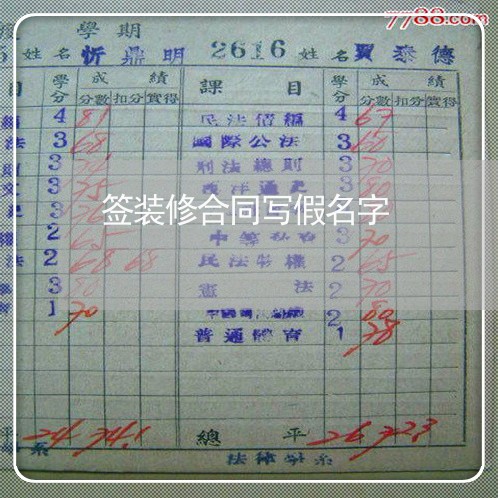 7788.com
學期
5 姓名 忻鼎明 2616 姓名 賈泰德
目 學分 成績 課目 學分 成績
分數 扣分 實得 分數 扣分 實得
4 81 民法債編 4 67
法 3 68 國際公法 3 60
3 刑法總則 3 70
3 75 西洋通史 3 80
签装修合同写假名字
2 65 3 70
法 2 68 68 民法物權 2 65
3 80 憲法 2 70
1 70 2 80
普通體育 1 78
平 24 74.1 總平 26 72.3
系 法律學系